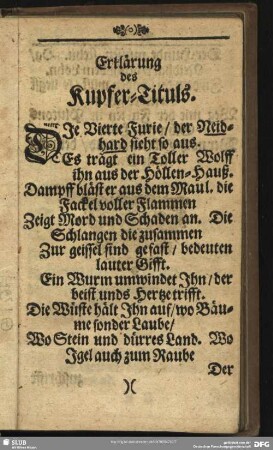 Erklärung
des
Kupfer-Tituls.
DJe Vierte Furie / der Neid-
hard sieht so aus.
Es trägt ein Toller Wolff
ihn aus der Höllen-Hauß.
Dampff bläst er aus dem Maul. die
Fackel voller Flammen
Zeigt Mord und Schaden an. Die
Schlangen die zusammen
Zur geissel sind gefast / bedeuten
lauter Gifft.
Ein Wurm umwindet Jhn / der
beist unds Hertze trifft.
Die Wüste hält Jhn auf / wo Bäu-
me sonder Laube /
Wo Stein und dürres Land. Wo
Jgel auch zum Raube
Der
)(
SLUB
DFG